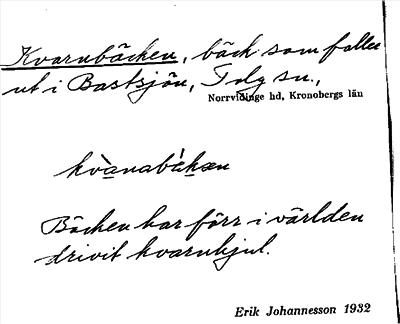 Kvarnbäcken, bäck som faller
ut i Bastsjön, Tolg sn.,
Norrvidinge hd, Kronobergs län
kvànabʹäkən
Bäcken har förr i världen
drivit kvarnhjul.
Erik Johannesson 1932